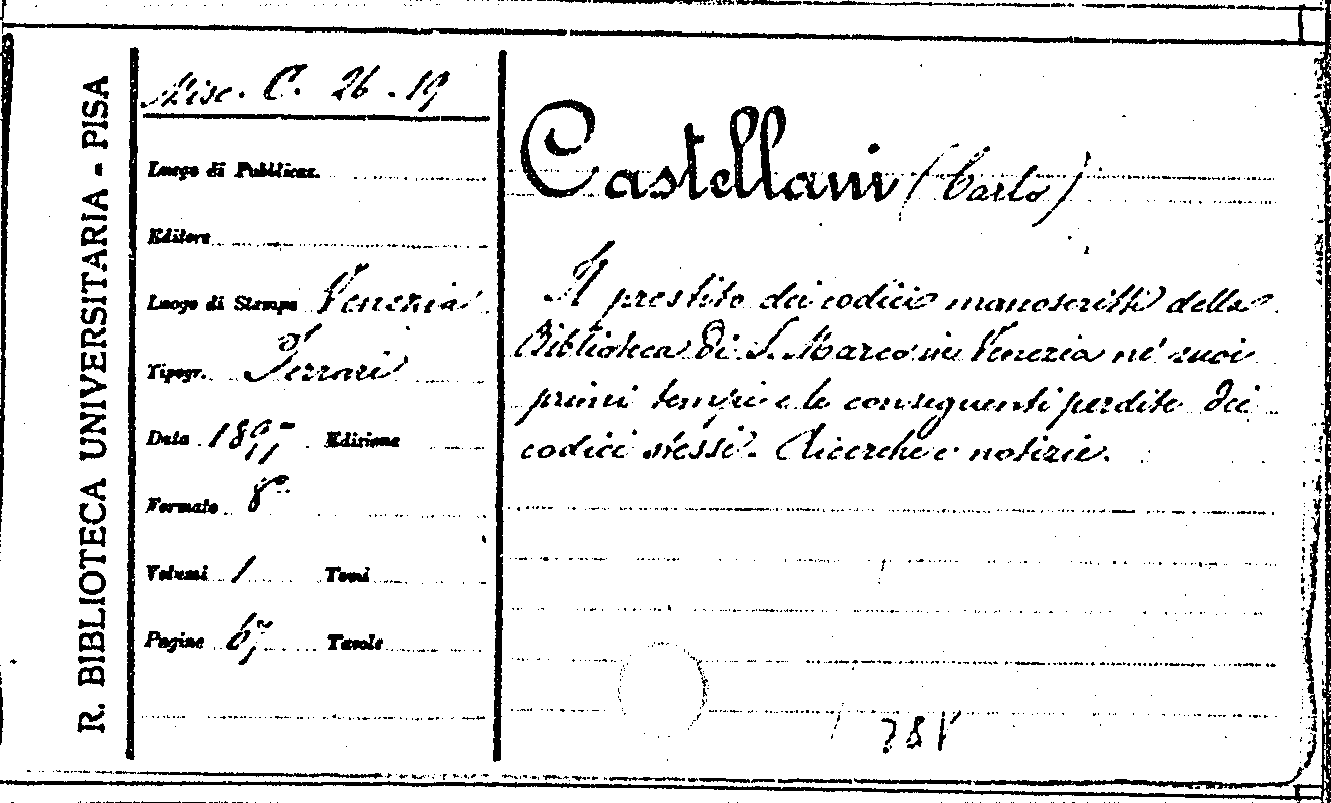 R. BIBLIOTECA UNIVERSITARIA - PISA
Misc. C. 26 . 19
Luogo di Pubblicaz.
Editore
Luogo di Stampa Venezia
Tipogr. Ferrari
Data 1897 Edizione
Formato 8°
Volumi 1 Tomi
Pagine Tavole
Castellani (Carlo)
Il prestito dei codici manoscritti della
Biblioteca di S. Marco in Venezia ne' suoi
primi tempi e le conseguenti perdite dei
codici stessi. Ricerche e notizie.